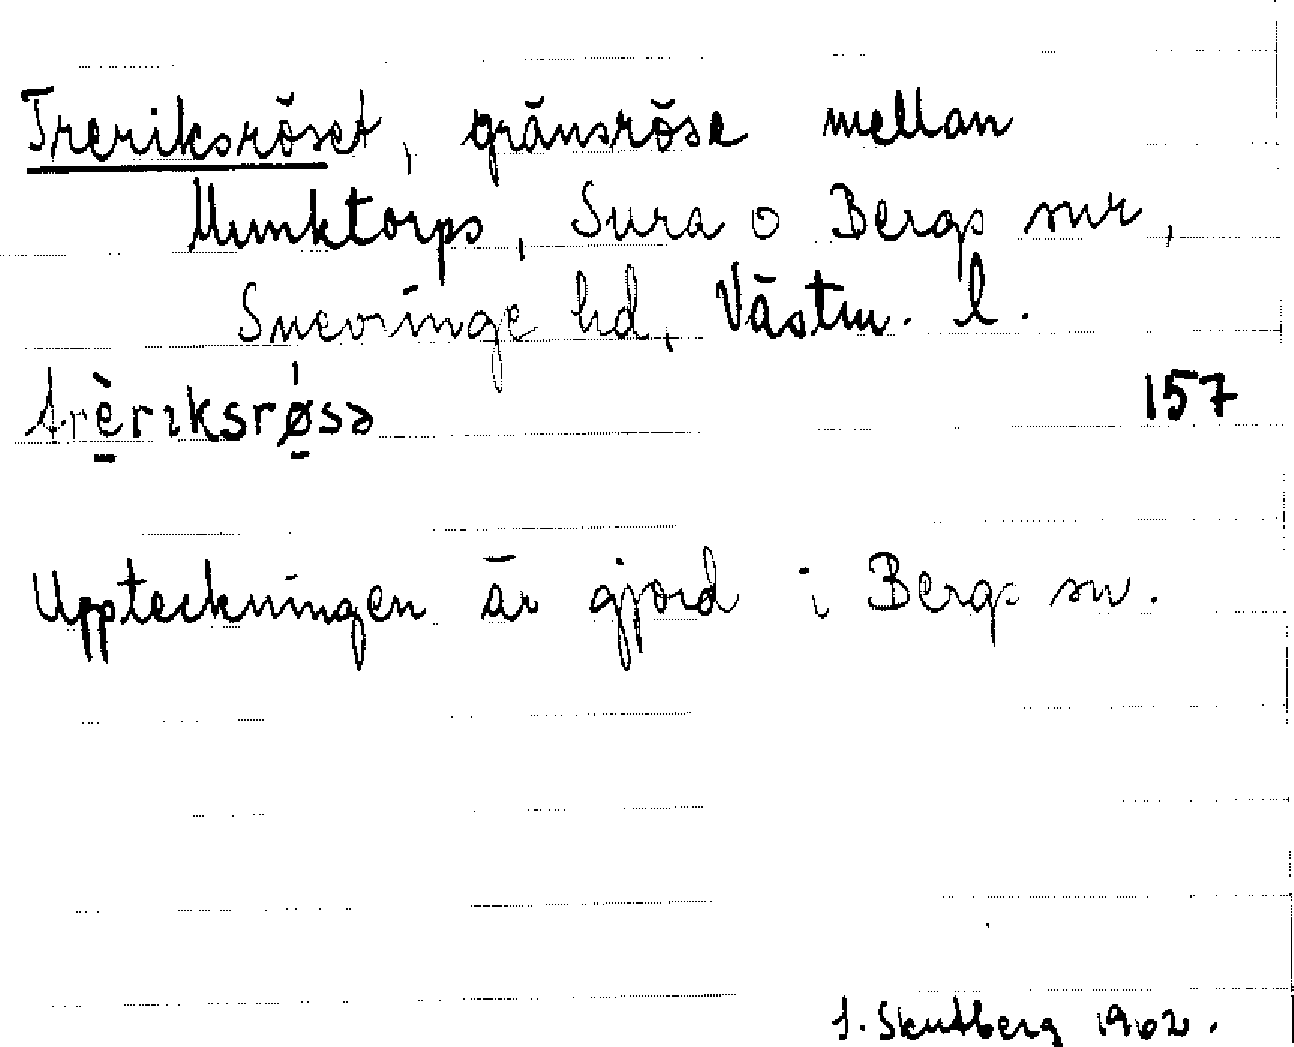 Treriksröset, gränsröse mellan
Munktorps, Sura o Bergs snr,
Snevringe hd, Västm. l.
trèriksrø̀sə 157
Uppteckningen är gjord i Bergs sn.
S. Skutberg 1962.